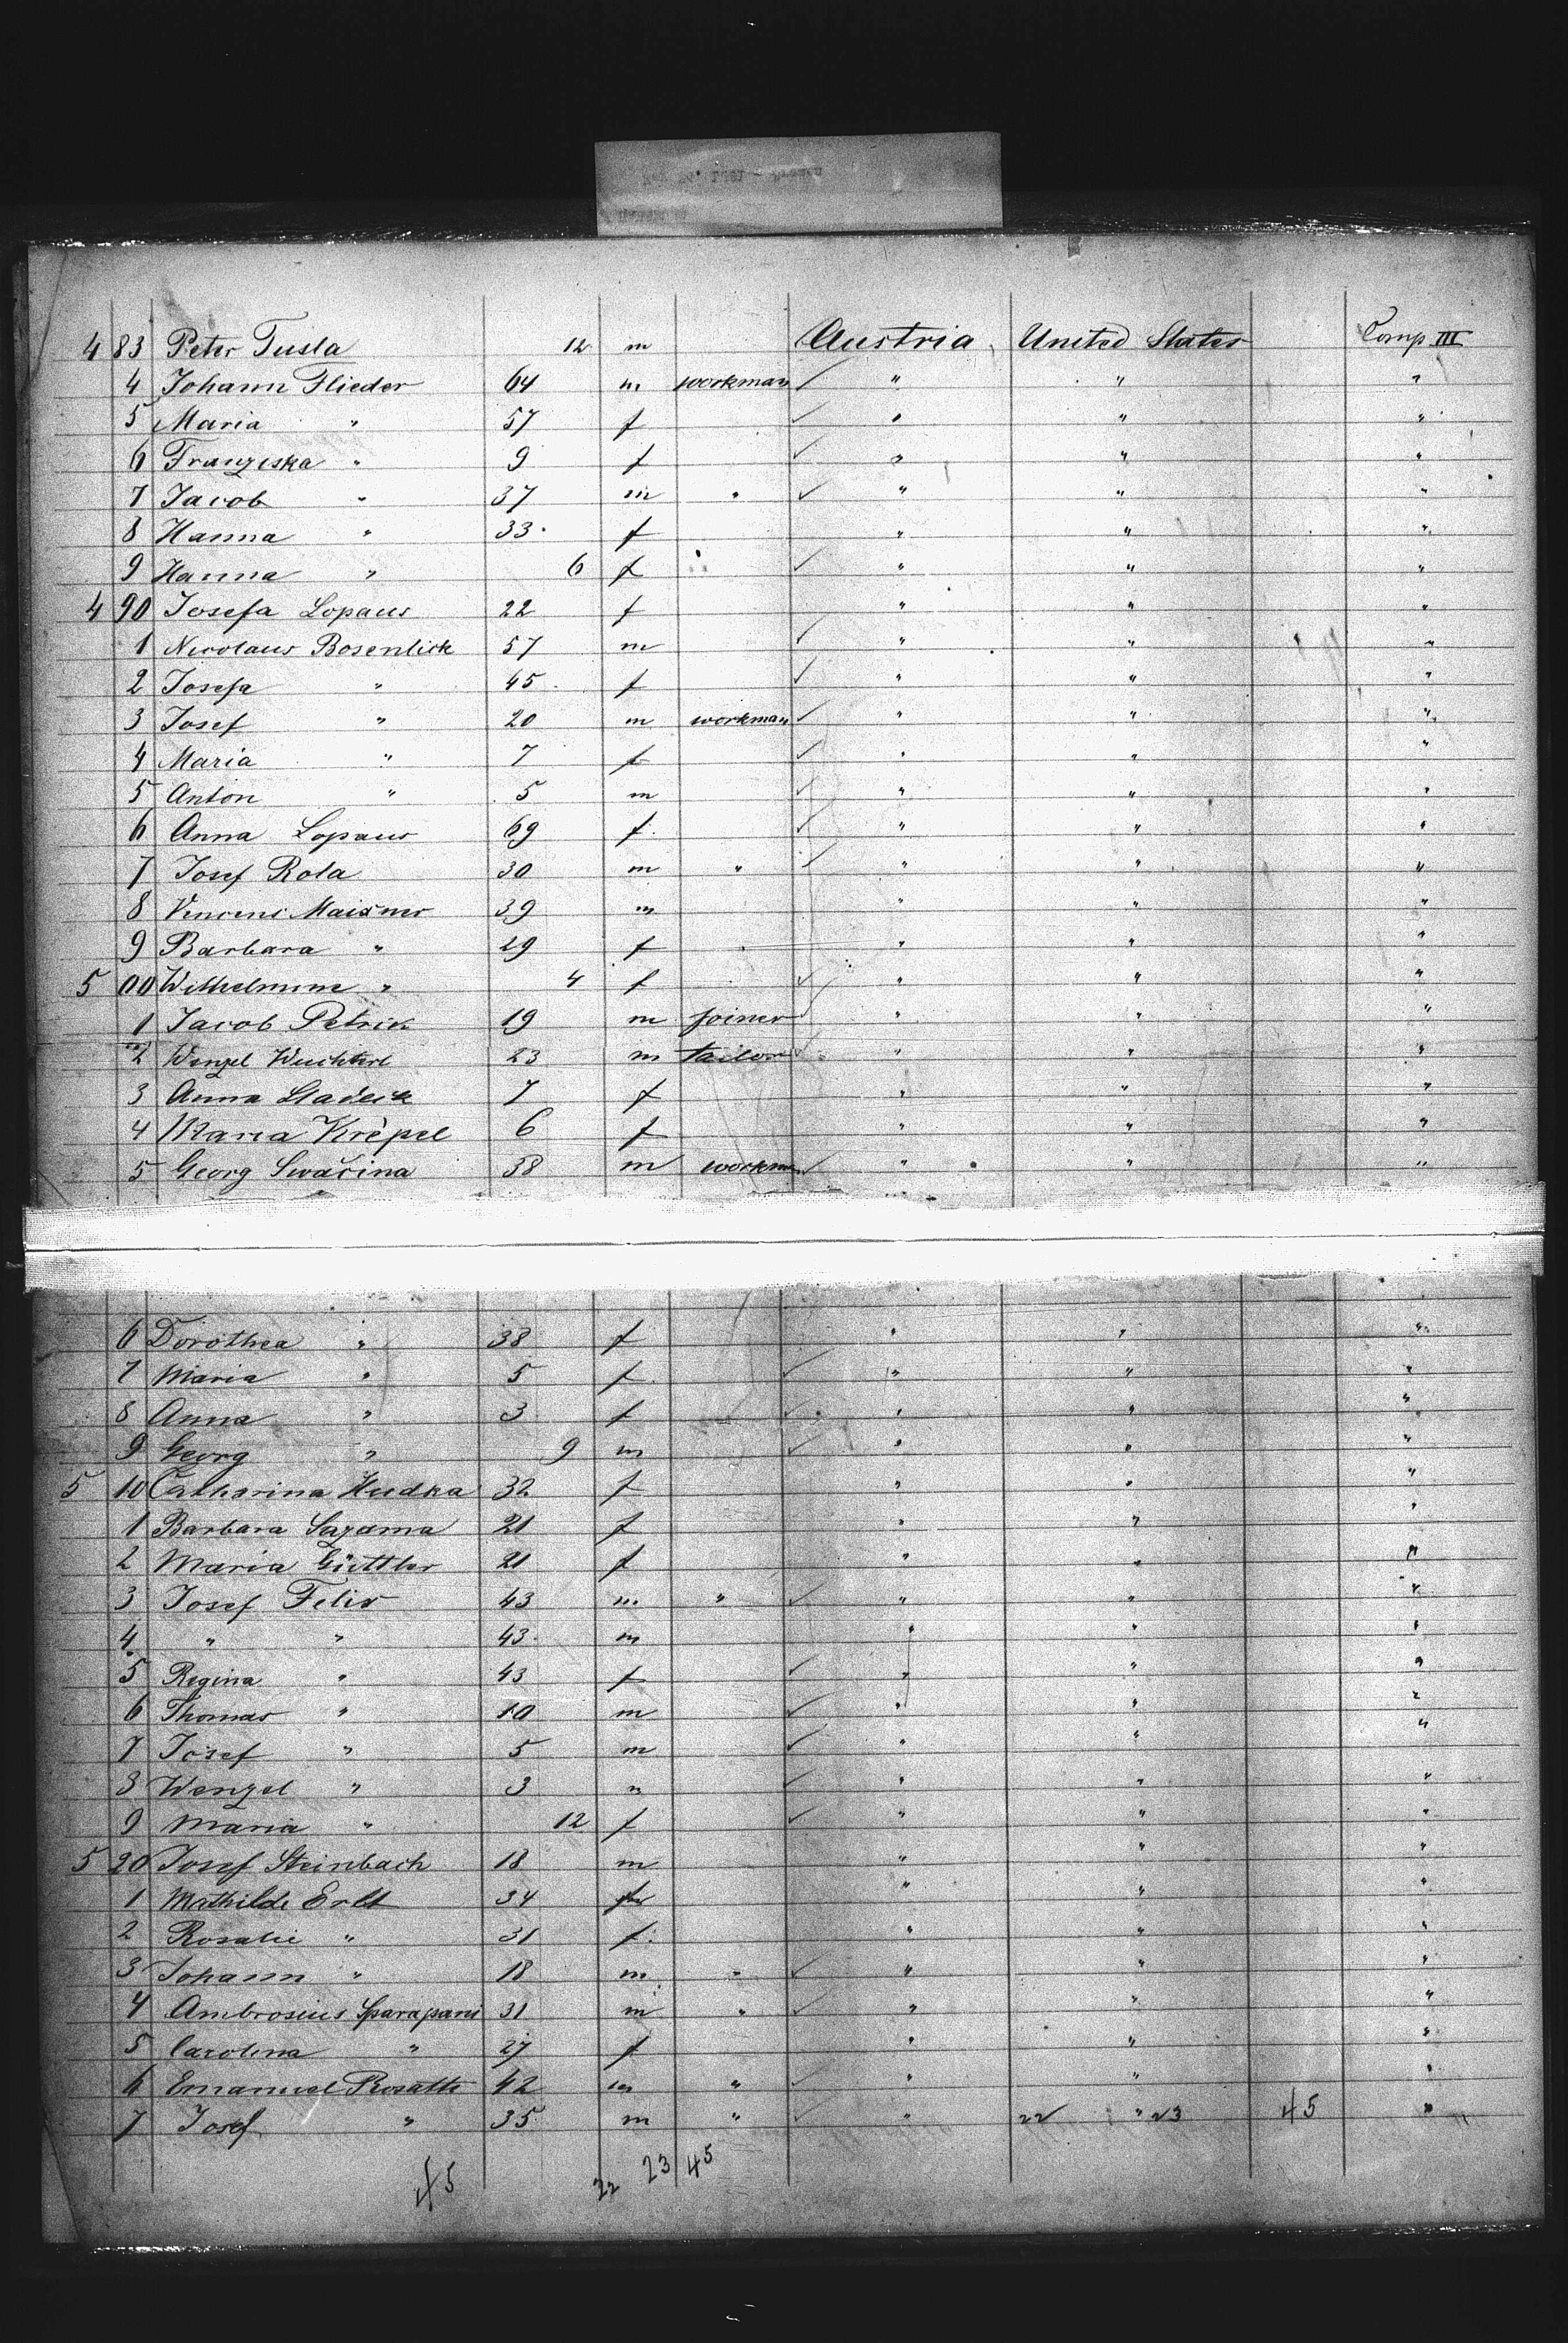 4 83 Peter Tusla 12 m Austria United States Comp III
4 Johann Flieder 64 m workman " " "
5 Maria " 57 f " " "
6 Franziska " 9 f " " "
7 Jacob " 37 m " " " "
8 Hanna " 33 f " " "
9 Hanna " 6 f " " "
4 90 Josefa Lopaus 22 f " " "
1 Nicolaus Bosenlick 57 m " " "
2 Josefa " 45 f " " "
3 Josef " 20 m workman " " "
4 Maria " 7 f " " "
5 Anton " 5 m " " "
6 Anna Lopaus 69 f " " "
7 Josef Rola 30 m " " " "
8 Vincens Maixner 39 m " " "
9 Barbara " 29 f " " "
5 00 Wilhelmine " 4 f " " "
1 Jacob Petrik 19 m joiner " " "
2 Wenzel Wuchterl 23 m tailor " " "
3 Anna Sladeck 7 f " " "
4 Maria Krěpel 6 f " " "
5 Georg Swačina 38 m workman " " "
6 Dorothea " 38 f " " "
7 Maria " 5 f " " "
8 Anna " 3 f " " "
9 Georg " 9 m " " "
5 10 Catharina Hudka 32 f " " "
1 Barbara Sazama 21 f " " "
2 Maria Güttler 21 f " " "
3 Josef Felix 43 m " " " "
4 " " 43 m " " "
5 Regina " 43 f " " "
6 Thomas " 10 m " " "
7 Josef " 5 m " " "
8 Wenzel " 3 m " " "
9 Maria " 12 f " " "
5 20 Josef Steinbach 18 m " " "
1 Mathilde Erlt 34 f " " "
2 Rosalie " 31 f " " "
3 Johann " 18 m " " " "
4 Ambrosius Sparapani 31 m " " " "
5 Carolina " 27 f " " "
6 Emanuel Rosatti 42 m " " " "
7 Josef " 35 m " " 22 " 23 45 "
45 22 23 45